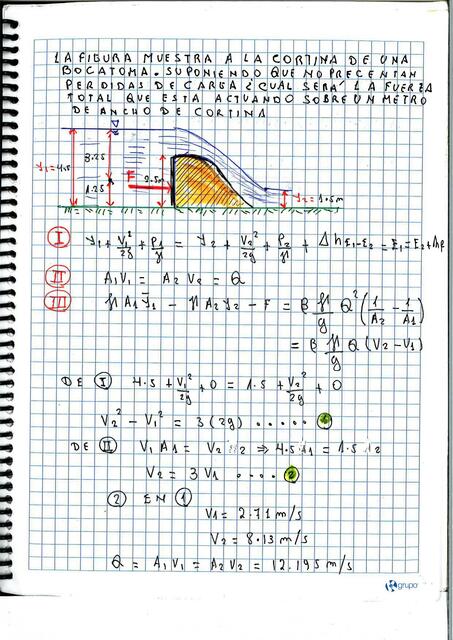 LA FIGURA MUESTRA A LA CORTINA DE UNA
BOCATOMA. SUPONIENDO QUE NO PRECENTAN
PERDIDAS DE CARGA ¿CUAL SERÁ LA FUERZA
TOTAL QUE ESTA ACTUANDO SOBRE UN METRO
DE ANCHO DE CORTINA
3.25
y₁=4.5
F
2.5m
1.25
y₂=1.5m
I y₁ + V₁²/2g + P₁/γ = y₂ + V₂²/2g + P₂/γ + Δh E₁-E₂ = E₁ = E₂ + Δp
II A₁V₁ = A₂V₂ = Q
III γA₁ȳ₁ - γA₂ȳ₂ - F = β γ/g Q² (1/A₂ - 1/A₁)
= β γ/g Q (V₂ - V₁)
DE I 4.5 + V₁²/2g + 0 = 1.5 + V₂²/2g + 0
V₂² - V₁² = 3(2g) ...... 1
DE II V₁A₁ = V₂A₂ ⇒ 4.5V₁ = 1.5V₂
V₂ = 3V₁ .... 2
2 EN 1
V₁ = 2.71 m/s
V₂ = 8.13 m/s
Q = A₁V₁ = A₂V₂ = 12.195 m/s
grupo